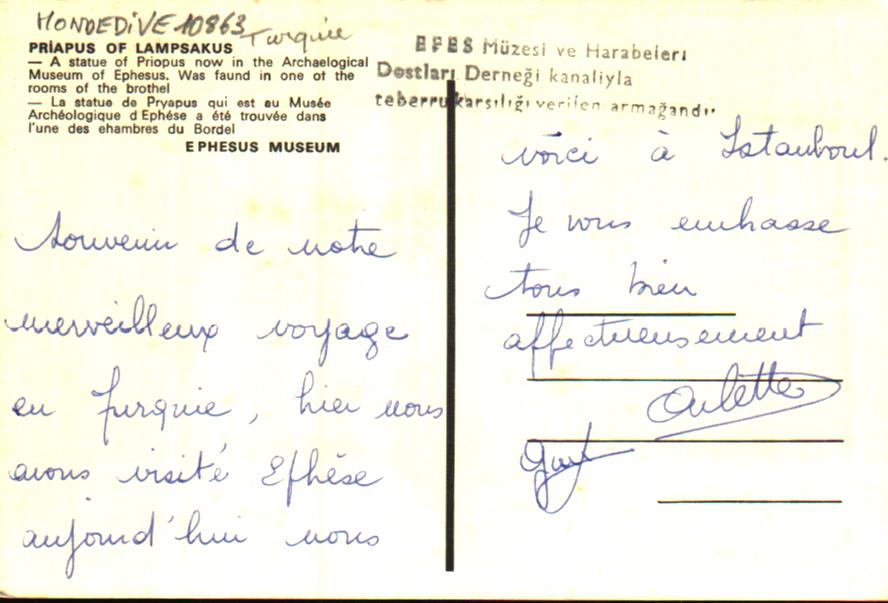 MONDEDIVE 10863 Turquie
PRİAPUS OF LAMPSAKUS
— A statue of Priopus now in the Archaelogical
Museum of Ephesus. Was faund in one of the
rooms of the brothel
— La statue de Pryapus qui est au Musée
Archéologique d Ephése a été trouvée dans
l'une des ehambres du Bordel
EPHESUS MUSEUM
EFES Müzesi ve Harabeleri
Dostları Derneği kanaliyla
teberru karsılığı verilen armağandır
Souvenir de notre
merveilleux voyage
en Turquie, hier nous
avons visité Ephèse
aujourd'hui nous
voici à Istanboul.
Je vous embrasse
tous bien
affectueusement